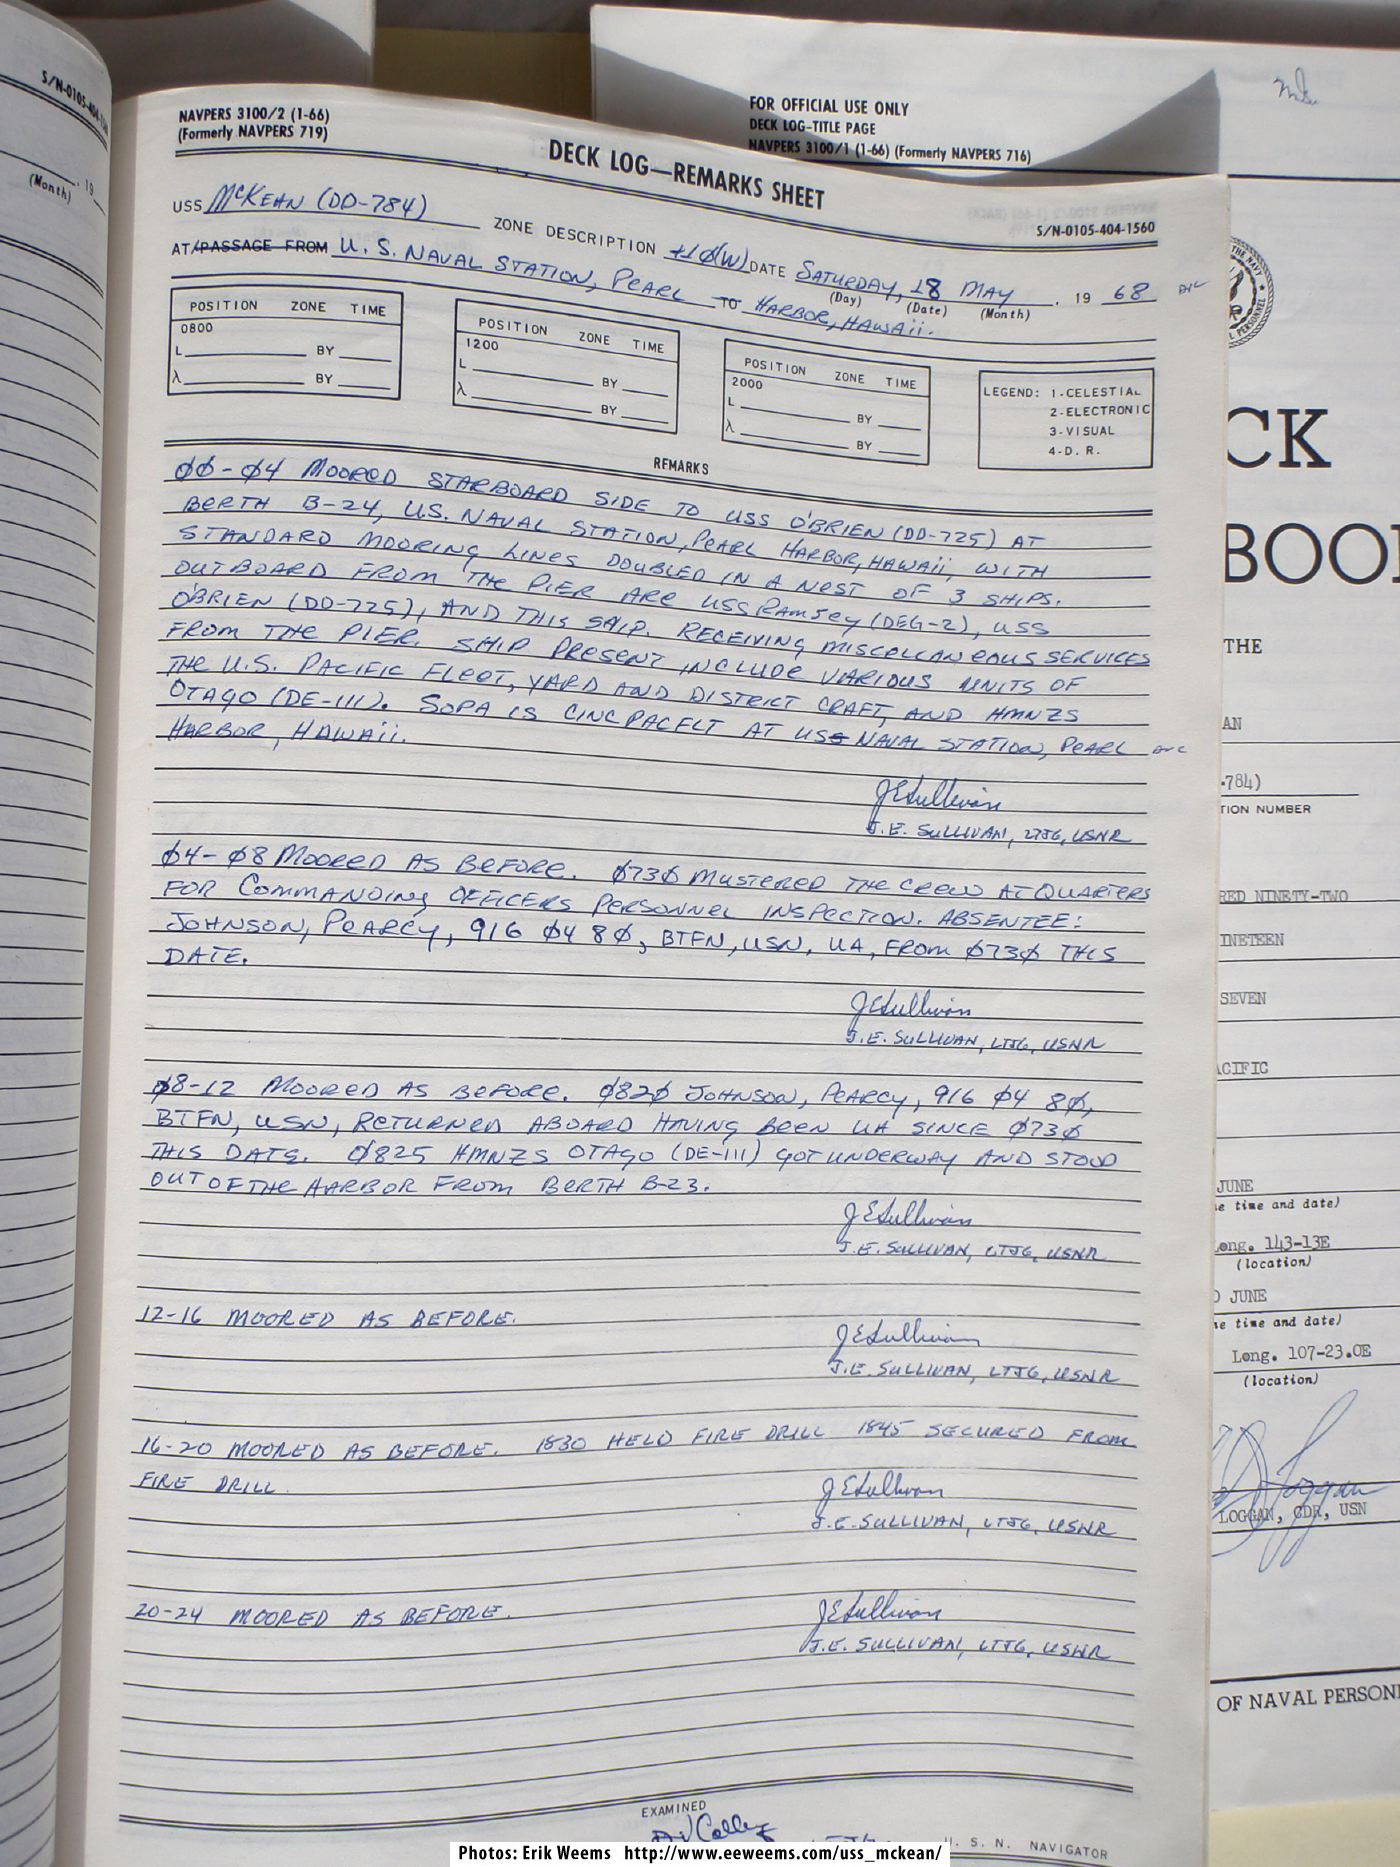 S/N-0105-404-
(Month)
19
NAVPERS 3100/2 (1-66)
(Formerly NAVPERS 719)
DECK LOG—REMARKS SHEET
S/N-0105-404-1560
USS McKEAN (DD-784) ZONE DESCRIPTION +1Ø(W) DATE SATURDAY, 18 MAY . 19 68
(Day) (Date) (Month)
AT/PASSAGE FROM U.S. NAVAL STATION, PEARL TO HARBOR, HAWAII.
POSITION ZONE TIME
0800
L BY
λ BY
POSITION ZONE TIME
1200
L BY
λ BY
POSITION ZONE TIME
2000
L BY
λ BY
LEGEND: 1-CELESTIAL
2-ELECTRONIC
3-VISUAL
4-D. R.
REMARKS
ØØ-Ø4 MOORED STARBOARD SIDE TO USS O'BRIEN (DD-725) AT
BERTH B-24, U.S. NAVAL STATION, PEARL HARBOR, HAWAII, WITH
STANDARD MOORING LINES DOUBLED IN A NEST OF 3 SHIPS.
OUTBOARD FROM THE PIER ARE USS RAMSEY (DEG-2), USS
O'BRIEN (DD-725), AND THIS SHIP. RECEIVING MISCELLANEOUS SERVICES
FROM THE PIER. SHIP PRESENT INCLUDE VARIOUS UNITS OF
THE U.S. PACIFIC FLEET, YARD AND DISTRICT CRAFT, AND HMNZS
OTAGO (DE-111). SOPA IS CINCPACFLT AT US NAVAL STATION, PEARL
HARBOR, HAWAII.
JESullivan
J.E. SULLIVAN, LTJG, USNR
Ø4-Ø8 MOORED AS BEFORE. Ø73Ø MUSTERED THE CREW AT QUARTERS
FOR COMMANDING OFFICERS PERSONNEL INSPECTION. ABSENTEE:
JOHNSON, PEARCY, 916 Ø4 8Ø, BTFN, USN, UA, FROM Ø73Ø THIS
DATE.
JESullivan
J.E. SULLIVAN, LTJG, USNR
Ø8-12 MOORED AS BEFORE. Ø82Ø JOHNSON, PEARCY, 916 Ø4 8Ø,
BTFN, USN, RETURNED ABOARD HAVING BEEN UA SINCE Ø73Ø
THIS DATE. Ø825 HMNZS OTAGO (DE-111) GOT UNDERWAY AND STOOD
OUT OF THE HARBOR FROM BERTH B-23.
JESullivan
J.E. SULLIVAN, LTJG, USNR
12-16 MOORED AS BEFORE.
JESullivan
J.E. SULLIVAN, LTJG, USNR
16-20 MOORED AS BEFORE. 1830 HELD FIRE DRILL 1845 SECURED FROM
FIRE DRILL.
JESullivan
J.E. SULLIVAN, LTJG, USNR
20-24 MOORED AS BEFORE.
JESullivan
J.E. SULLIVAN, LTJG, USNR
EXAMINED
U. S. N. NAVIGATOR
FOR OFFICIAL USE ONLY
DECK LOG-TITLE PAGE
NAVPERS 3100/1 (1-66) (Formerly NAVPERS 716)
CK
BOO
THE
AN
-784)
TION NUMBER
RED NINETY-TWO
INETEEN
SEVEN
ACIFIC
JUNE
e time and date)
ong. 143-13E
(location)
JUNE
e time and date)
Long. 107-23.0E
(location)
LOGGAN, CDR, USN
OF NAVAL PERSON
Photos: Erik Weems http://www.eeweems.com/uss_mckean/